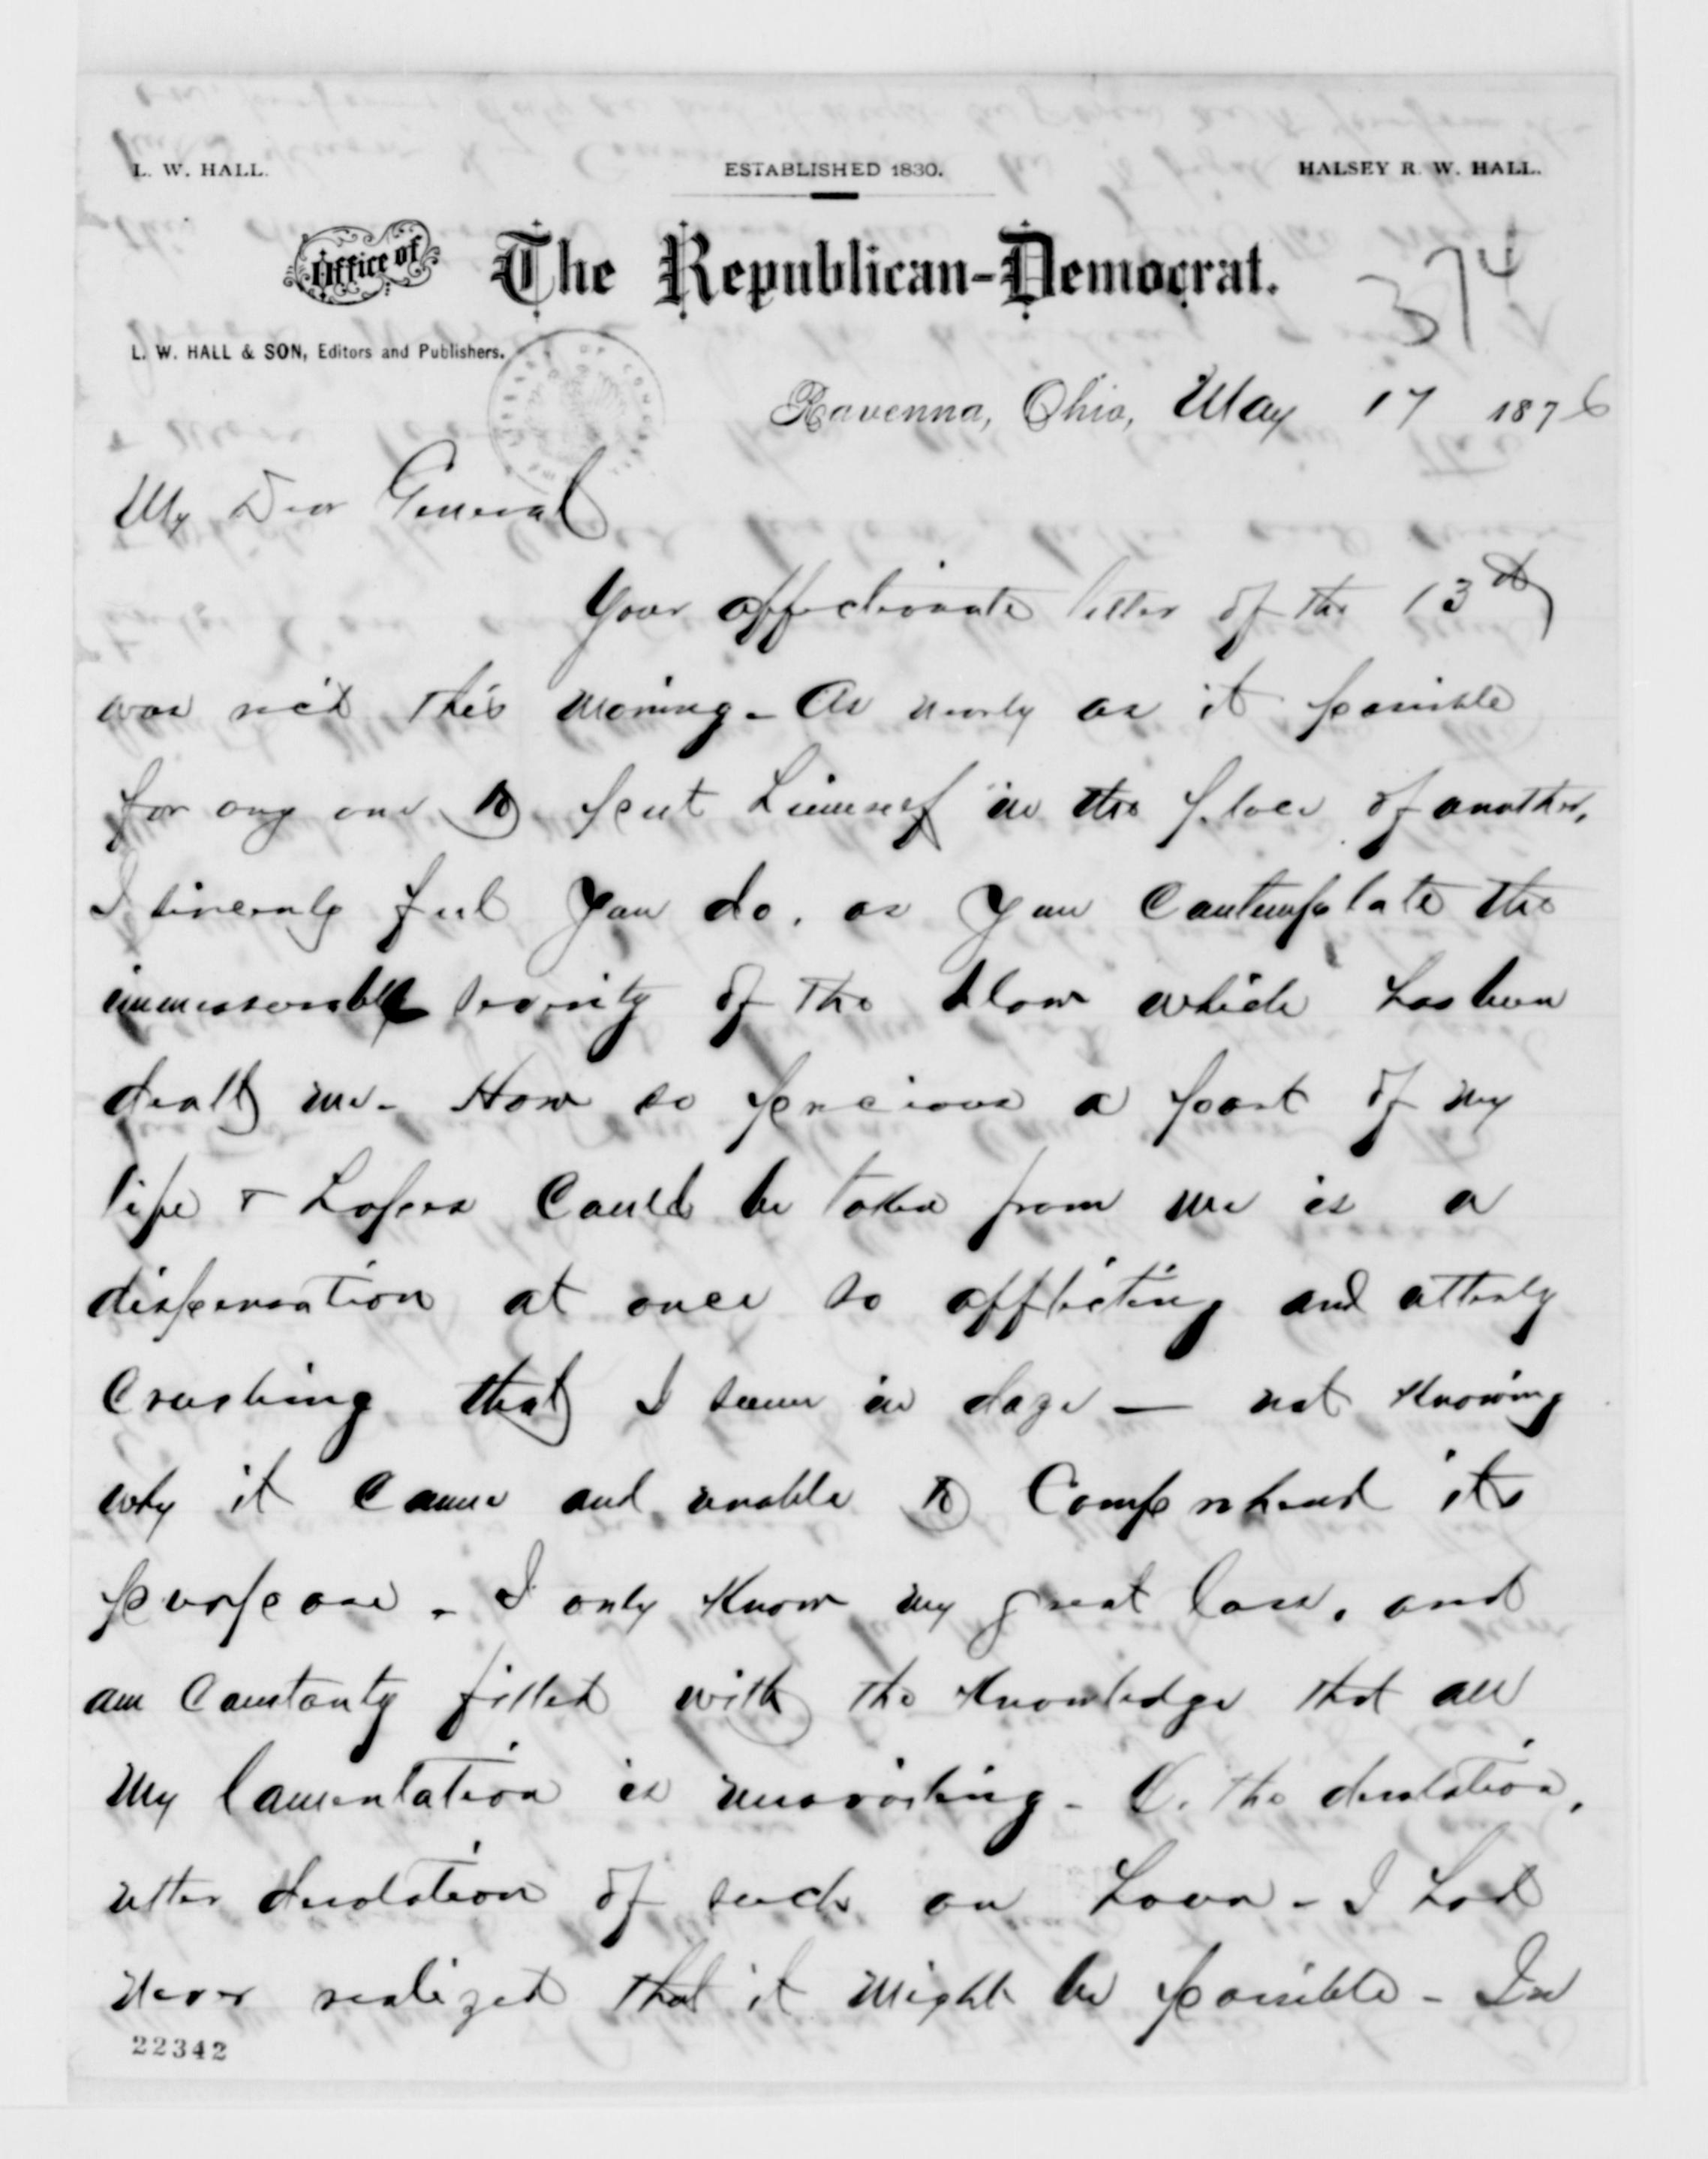 L. W. HALL. ESTABLISHED 1830. HALSEY R. W. HALL.
Office of The Republican-Democrat.
374
L. W. HALL & SON, Editors and Publishers.
Ravenna, Ohio, May 17 1876
My Dear General
Your affectionate letter of the 13th
was rec'd this morning - As nearly as it possible
for any one to put himself in the place of another,
I sincerely feel you do, as you contemplate the
immeasurable severity of the blow which has been
dealt me - How so precious a part of my
life & hopes could be taken from me is a
dispensation at once so afflicting and utterly
crushing that I seem in daze — not knowing
why it came and unable to comprehend its
purpose - I only know my great loss, and
am constantly filled with the knowledge that all
my lamentation is unavailing - O, the desolation,
utter desolation of such an hour - I had
never realized that it might be possible - In
22342